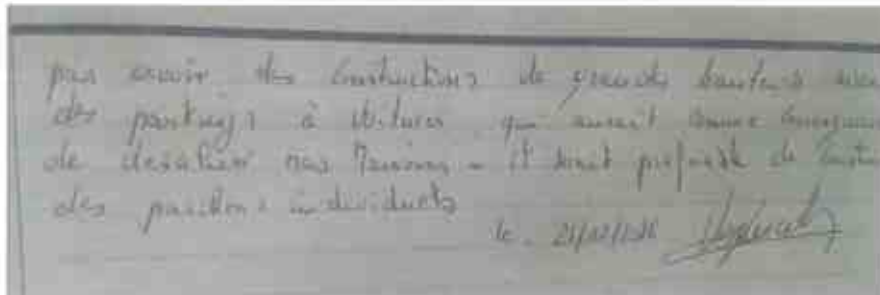 pas avoir des constructions de grandes hauteurs avec
des parkings à voitures qui aurait comme
de dévaluer nos maisons - il serait préférable de
des pavillons individuels
le